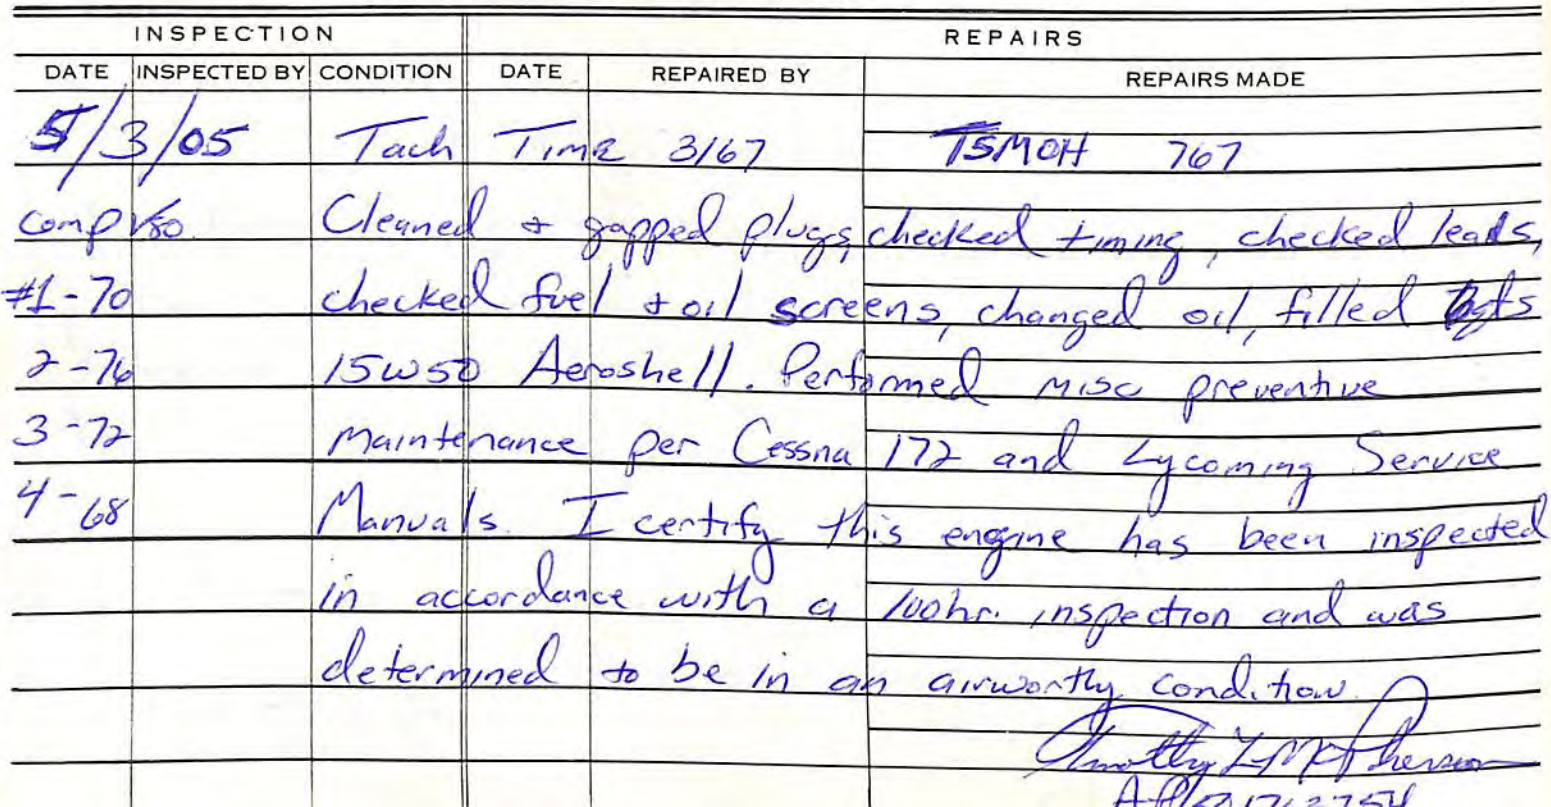 INSPECTION REPAIRS
DATE INSPECTED BY CONDITION DATE REPAIRED BY REPAIRS MADE
5/3/05 Tach Time 3167 TSMOH 767
comp /80 Cleaned + gapped plugs, checked timing, checked leads,
#1-70 checked fuel + oil screens, changed oil, filled 7qts
2-76 15W50 Aeroshell. Performed misc preventive
3-72 Maintenance per Cessna 172 and Lycoming Service
4-68 Manuals. I certify this engine has been inspected
in accordance with a 100hr. inspection and was
determined to be in an airworthy condition.
Timothy L McPherson